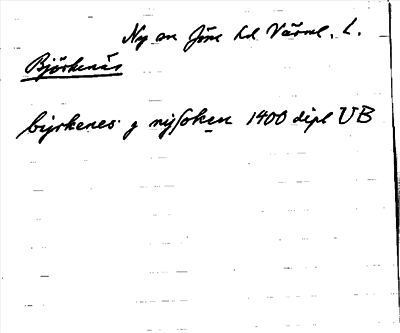 Ny sn Jösse hd Värml. L.
Björkenäs
byrkenes j nysoken 1400 dipl UB